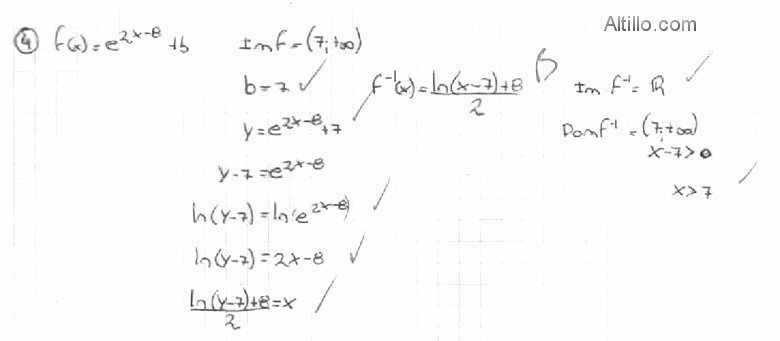 Altillo.com
④ f(x) = e^{2x-8} + b    Im f = (7; +∞)
b = 7 ✓    f^{-1}(x) = \frac{ln(x-7)+8}{2}    Im f^{-1} = ℝ ✓
y = e^{2x-8} + 7 ✓    Dom f^{-1} = (7; +∞)
x - 7 > 0
y - 7 = e^{2x-8}
x > 7 ✓
ln(y-7) = ln(e^{2x-8}) ✓
ln(y-7) = 2x - 8 ✓
\frac{ln(y-7)+8}{2} = x ✓